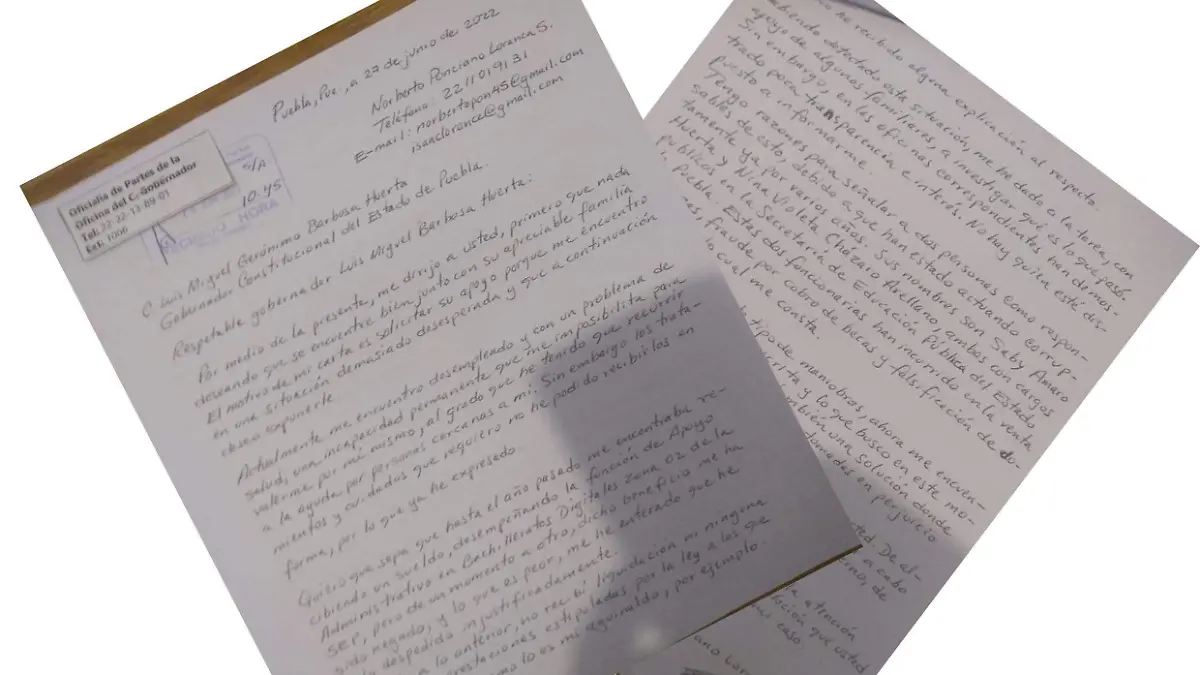 Puebla, Pue., a 27 de junio de 2022
Norberto Ponciano Loranca S.
Teléfono: 2211019131
E-mail: norbertopon45@gmail.com
isaaclorence@gmail.com
Oficialía de Partes de la
Oficina del C. Gobernador
Tel: 22-22-13-89-01
Ext: 1006
S/A
10:45
HORA
C. Luis Miguel Gerónimo Barbosa Huerta
Gobernador Constitucional del Estado de Puebla.
Respetable gobernador Luis Miguel Barbosa Huerta:
Por medio de la presente, me dirijo a usted, primero que nada
deseando que se encuentre bien junto con su apreciable familia
El motivo de mi carta es solicitar su apoyo porque me encuentro
en una situación demasiado desesperada y que a continuación
deseo exponerle.
Actualmente me encuentro desempleado y con un problema de
salud, una incapacidad permanente que me imposibilita para
valerme por mí mismo, al grado que he tenido que recurrir
a la ayuda por personas cercanas a mí. Sin embargo los trata-
mientos y cuidados que requiero no he podido recibirlos en
forma, por lo que ya he expresado.
Quiero que sepa que hasta el año pasado me encontraba re-
cibiendo un sueldo, desempeñando la función de Apoyo
Administrativo en Bachilleratos Digitales zona 02 de la
SEP, pero de un momento a otro, dicho beneficio me ha
sido negado, y lo que es peor, me he enterado que he
despedido injustificadamente.
a lo anterior, no recibí liquidación ni ninguna
prestaciones estipuladas por la ley a los que
como lo es mi aguinaldo, por ejemplo.
he recibido alguna explicación al respecto.
habiendo detectado esta situación, me he dado a la tarea, con
apoyo de algunos familiares, a investigar qué es lo que pasó.
Sin embargo, en las oficinas correspondientes han demos-
trado poca transparencia e interés. No hay quien esté dis-
puesto a informarme.
Tengo razones para señalar a dos personas como respon-
sables de esto, debido a que han estado actuando corrup-
tamente ya por varios años. Sus nombres son Saby Amaro
Huerta y Nina Violeta Chazaro Arellano, ambos con cargos
públicos en la Secretaría de Educación Pública del Estado
Puebla. Estas dos funcionarias han incurrido en la venta
fraude por cobro de becas y falsificación de do-
lo cual me consta.
tipo de maniobras, ahora me encuen-
y lo que busco en este mo-
también una solución donde
tomadas en perjuicio
De al-
a cabo
de
la atención
que usted
mi caso.